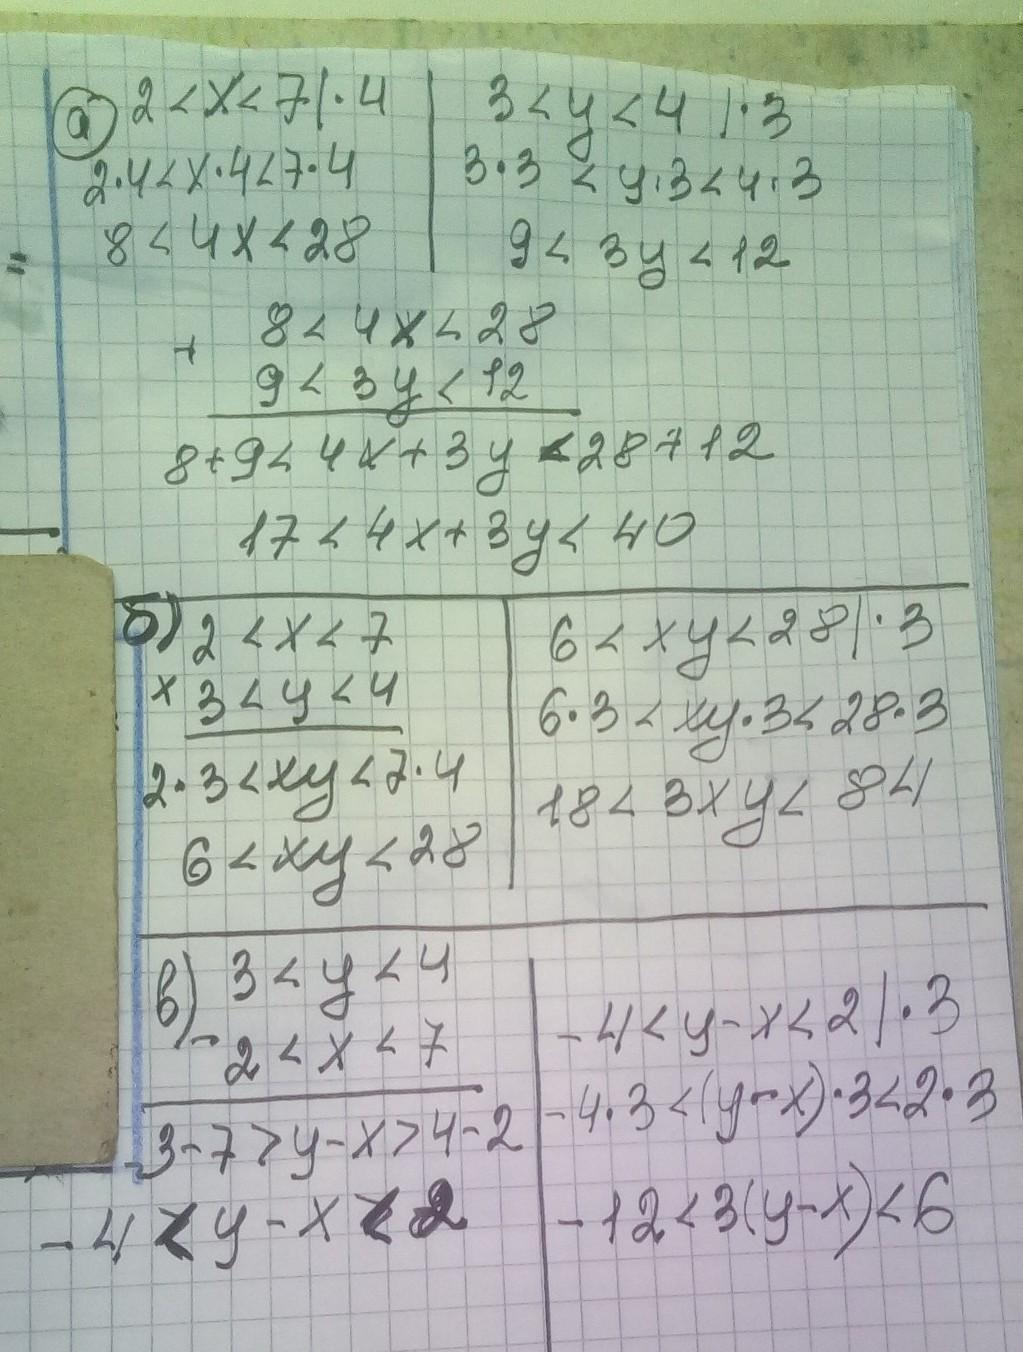 а) 2 < x < 7 | · 4
2·4 < x·4 < 7·4
8 < 4x < 28
3 < y < 4 | · 3
3·3 < y·3 < 4·3
9 < 3y < 12
=
+ 8 < 4x < 28
9 < 3y < 12
8+9 < 4x+3y < 28+12
17 < 4x+3y < 40
б) 2 < x < 7
× 3 < y < 4
2·3 < xy < 7·4
6 < xy < 28
6 < xy < 28 | · 3
6·3 < xy·3 < 28·3
18 < 3xy < 84
в) 3 < y < 4
- 2 < x < 7
3-7 > y-x > 4-2
-4 < y-x < 2
-4 < y-x < 2 | · 3
-4·3 < (y-x)·3 < 2·3
-12 < 3(y-x) < 6